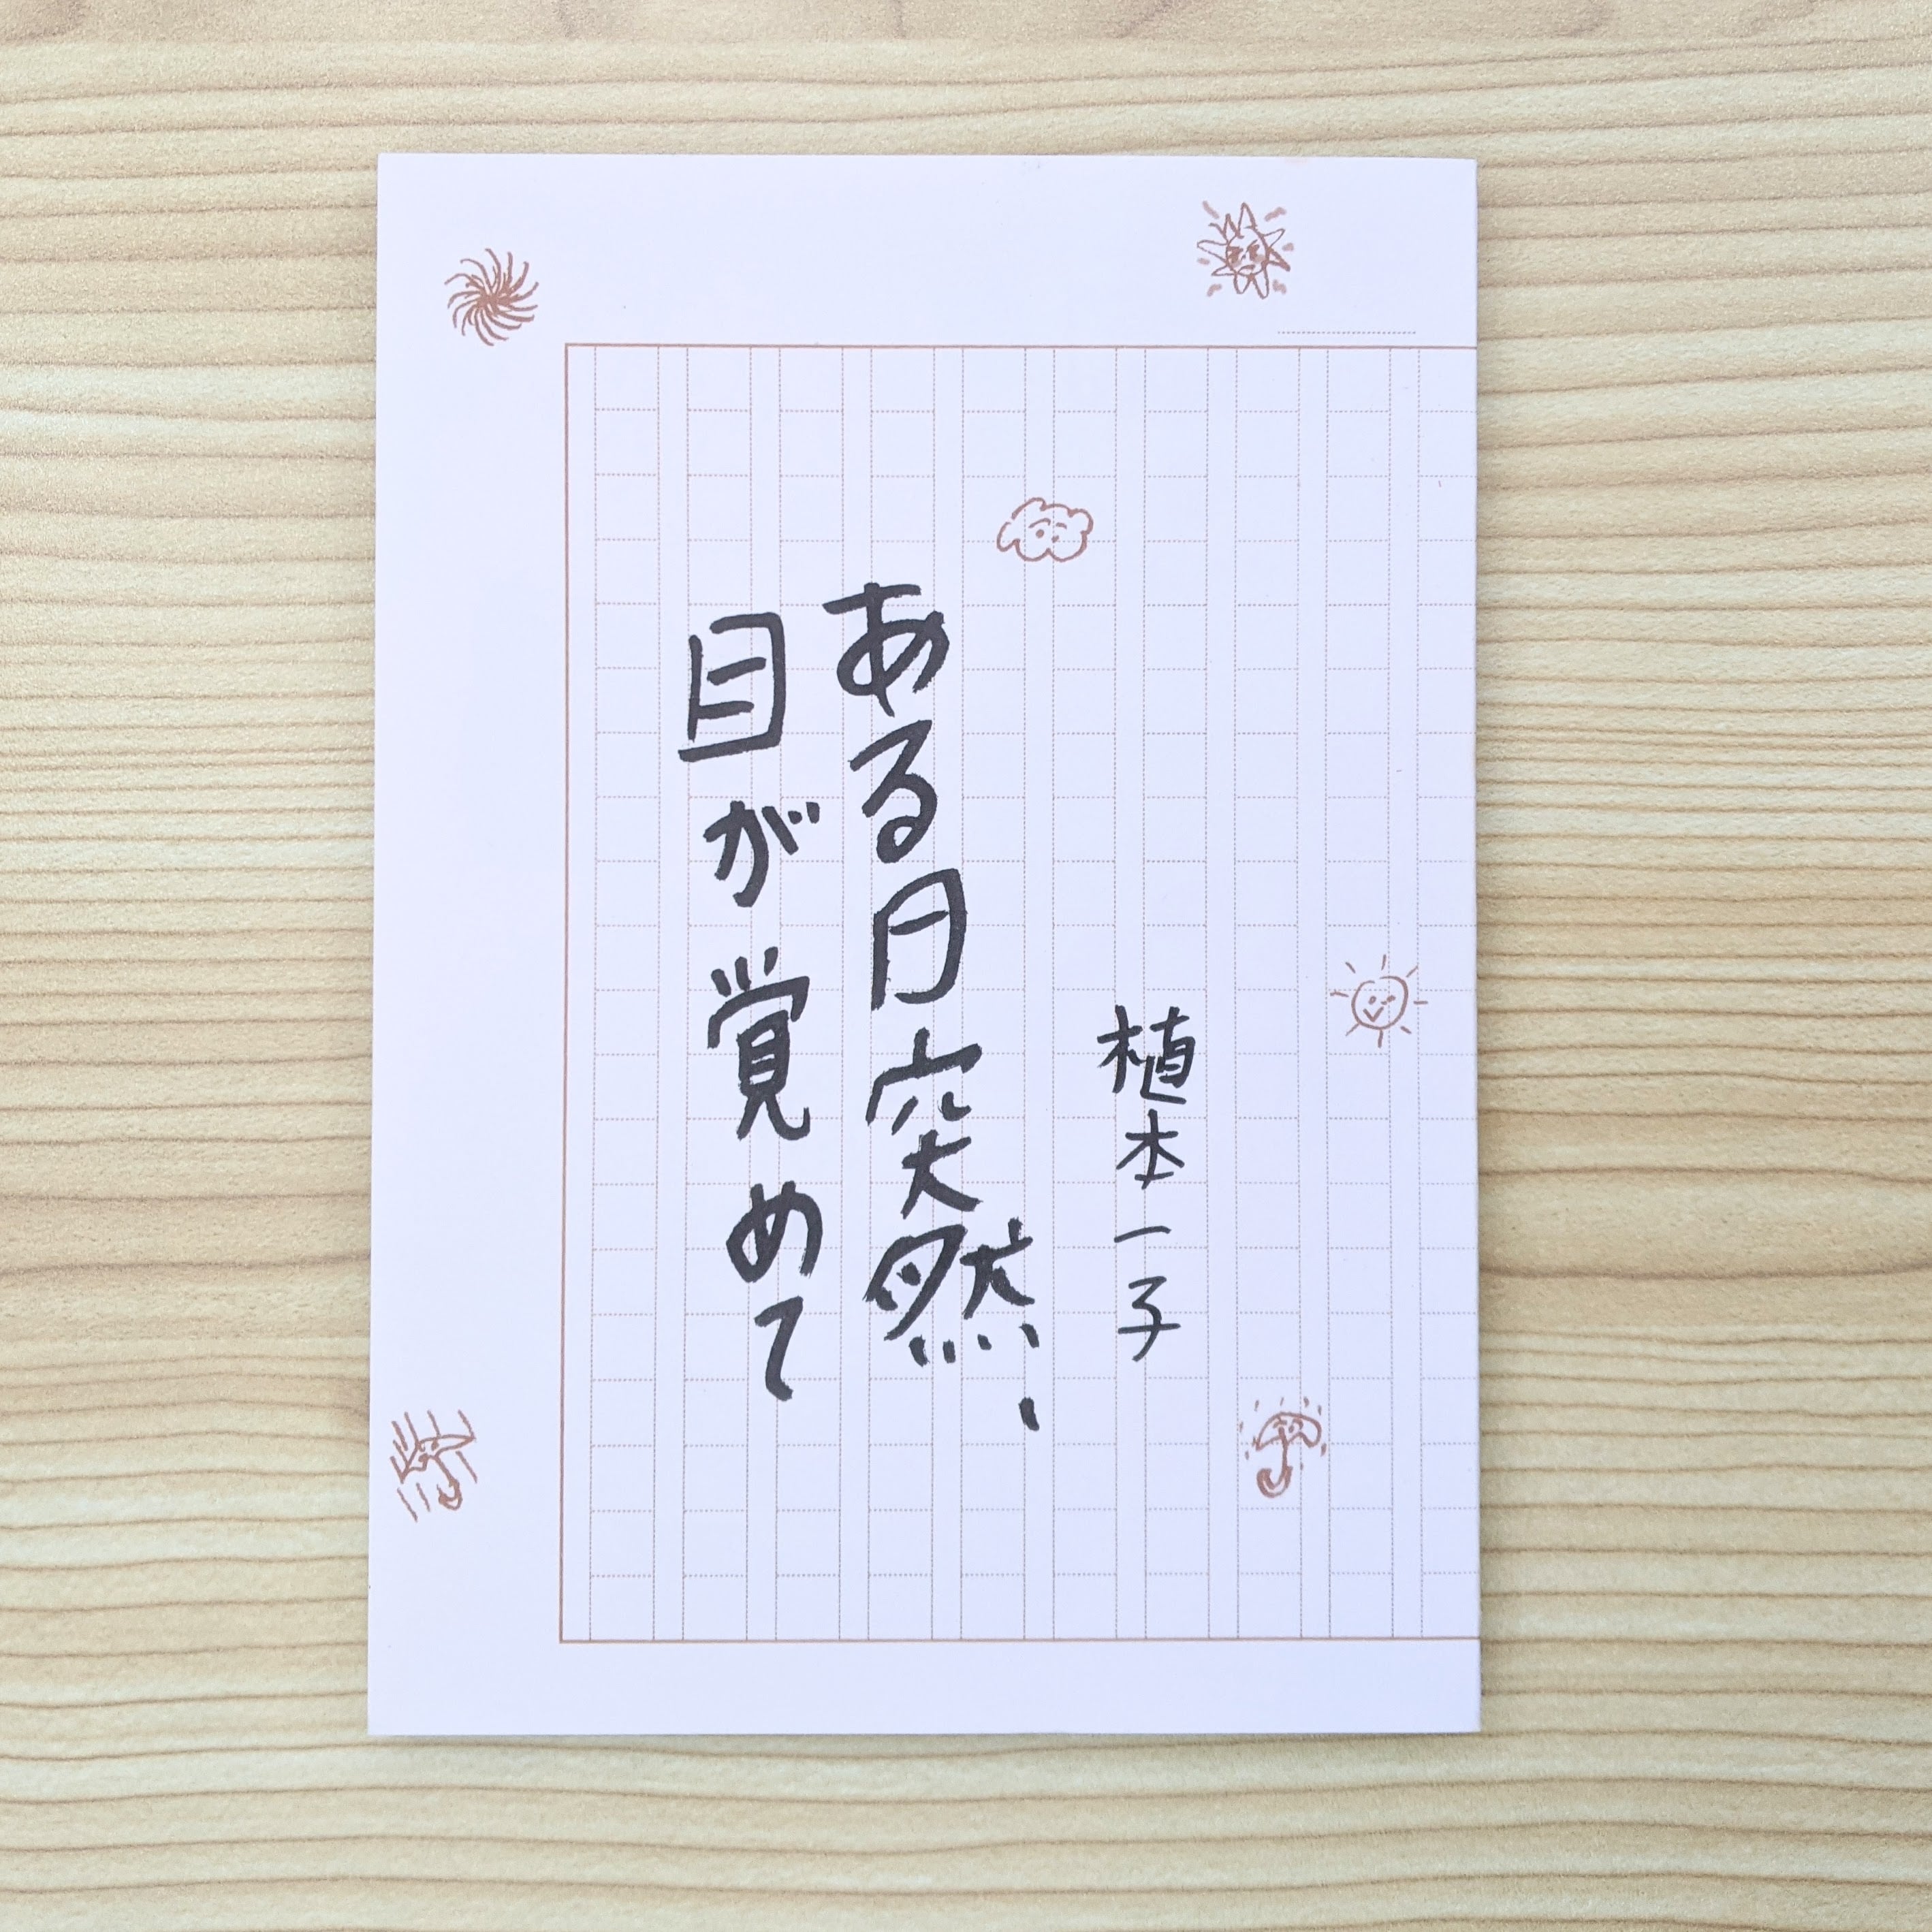 植本一子
ある日突然、
目が覚めて